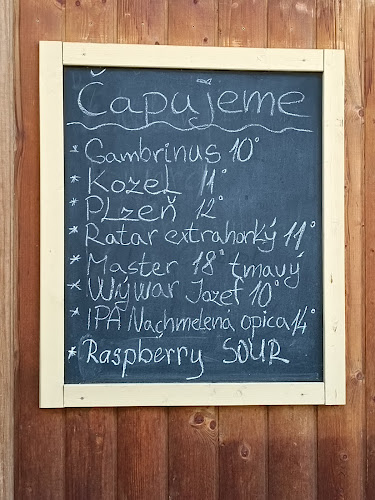 Čapujeme
* Gambrinus 10°
* Kozel 11°
* PLzeň 12°
* Ratar extrahorký 11°
* Master 18° tmavý
* Wywar Jozef 10°
* IPA Nachmelená opica 14°
* Raspberry SOUR